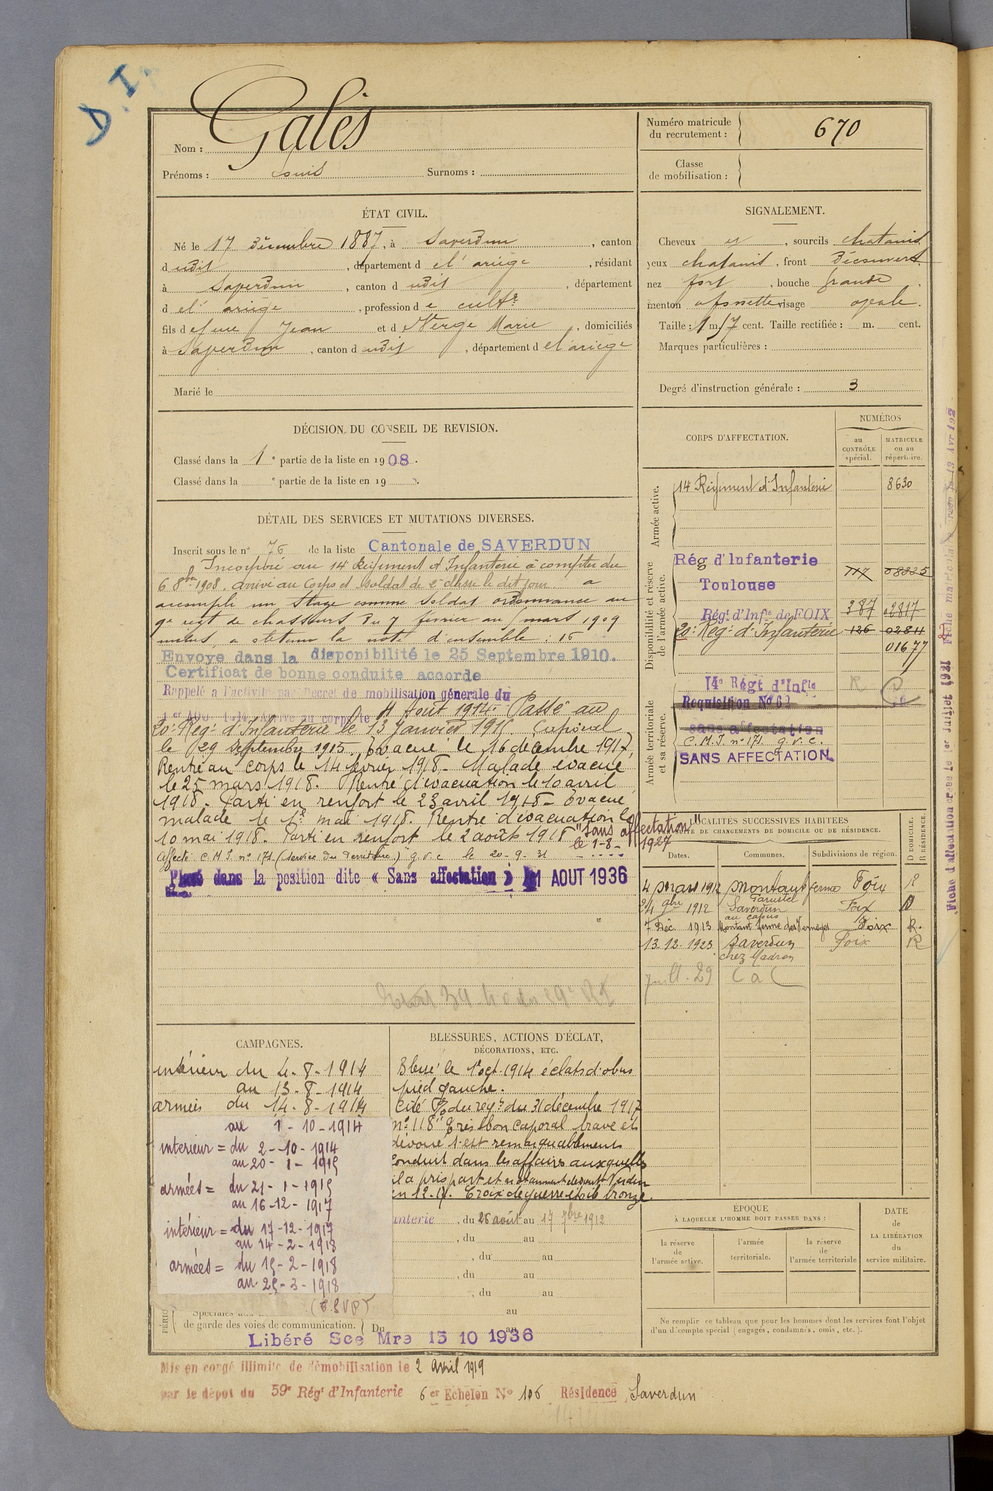 D.I.
Nom : Galès
Prénoms : Louis Surnoms :
Numéro matricule
du recrutement : 670
Classe
de mobilisation :
ÉTAT CIVIL.
Né le 17 décembre 1887, à Saverdun, canton
dudit, département de l'ariège, résidant
à Saverdun, canton dudit, département
de l'ariège, profession de cultr
fils de feu Jean et de Verge Marie, domiciliés
à Saverdun, canton dudit, département de l'ariège
Marié le
SIGNALEMENT.
Cheveux et, sourcils chatains
yeux chatains, front découvert
nez fort, bouche grande
menton à fossette visage ovale.
Taille : 1 m. 17 cent. Taille rectifiée : m. cent.
Marques particulières :
Degré d'instruction générale : 3
DÉCISION DU CONSEIL DE REVISION.
Classé dans la 1e partie de la liste en 1908.
Classé dans la e partie de la liste en 19 .
CORPS D'AFFECTATION.
NUMÉROS
au
CONTRÔLE
spécial.
MATRICULE
ou au
répertoire.
Armée active.
14 Régiment d'Infanterie 8630
Disponibilité et réserve
de l'armée active.
Rég d'Infanterie
Toulouse
Régt d'Infie de FOIX 387 02817
20e Régt d'Infanterie 126 02811
01677
Armée territoriale
et sa réserve.
14e Régt d'Infie
Requisition No 62
sans affectation
C.M.I. no 171. g.v.c.
SANS AFFECTATION.
DÉTAIL DES SERVICES ET MUTATIONS DIVERSES.
Inscrit sous le no 76 de la liste Cantonale de SAVERDUN
Incorporé au 14 Régiment d'Infanterie à compter du
6 8bre 1908. Arrivé au Corps et Soldat de 2e classe le dit jour a
accompli un stage comme soldat ordonnance au
9e régt de chasseurs du 7 février au mars 1909
a obtenu la note d'ensemble : 15
Envoyé dans la disponibilité le 25 Septembre 1910.
Certificat de bonne conduite accordé
Rappelé à l'activité par Décret de mobilisation générale du
1er Août 1914. Arrivé au corps le 4 août 1914. Passé au
20e Régt d'Infanterie le 13 Janvier 1915. Caporal
le 29 septembre 1915. Evacué le 16 décembre 1917,
Rentré au corps le 14 février 1918. Malade évacué
le 25 mars 1918. Rentré d'évacuation le 10 avril
1918. Parti en renfort le 23 avril 1918. Evacué
malade le 1er mai 1918. Rentré d'évacuation le
10 mai 1918. Parti en renfort le 2 août 1918 "Sans affectation"
le 1-8-1927
Affecté C.M.I. no 171 (service du Territoire) g.v.c. le 20-9-31
Placé dans la position dite « Sans affectation » le 1 AOUT 1936
LOCALITÉS SUCCESSIVES HABITÉES
PAR SUITE DE CHANGEMENTS DE DOMICILE OU DE RÉSIDENCE.
Dates. Communes. Subdivisions de région. D DOMICILE. R RÉSIDENCE.
4 mars 1912 Montaut ferme Foix R
24 9bre 1912 Saverdun Foix D
7 Déc. 1913 Montaut ferme Foix R.
13.12.1923 Saverdun Foix R
chez Madron
CAMPAGNES.
intérieur du 4-8-1914
au 13-8-1914
armées du 14-8-1914
au 1-10-1914
interieur = du 2-10-1914
au 20-1-1915
armées = du 21-1-1915
au 16-12-1917
intérieur = du 17-12-1917
au 14-2-1918
armées = du 15-2-1918
au 25-3-1918
(TSVP)
BLESSURES, ACTIONS D'ÉCLAT,
DÉCORATIONS, ETC.
Blessé le 1 oct. 1914 éclats d'obus
pied gauche.
Cité O/ du régt du 31 décembre 1917
no 118 "Très bon caporal brave et
dévoué s'est remarquablement
conduit dans les affaires auxquelles
il a pris part et notamment devant Verdun
en 12-17. Croix de guerre étoile bronze
anterie, du 26 août au 17 7bre 1912
, du au
, du au
, du au
, du au
au
Spéciales aux
de garde des voies de communication. Du au
Libéré Sce Mre 15 10 1936
ÉPOQUE
À LAQUELLE L'HOMME DOIT PASSER DANS :
la réserve
de
l'armée active.
l'armée
territoriale.
la réserve
de
l'armée territoriale
DATE
de
LA LIBÉRATION
du
service militaire.
Ne remplir ce tableau que pour les hommes dont les services font l'objet
d'un décompte spécial (engagés, condamnés, omis, etc.).
Mis en congé illimité de démobilisation le 2 Avril 1919
par le dépôt du 59e Régt d'Infanterie 6er Echelon No 106 Résidence Saverdun